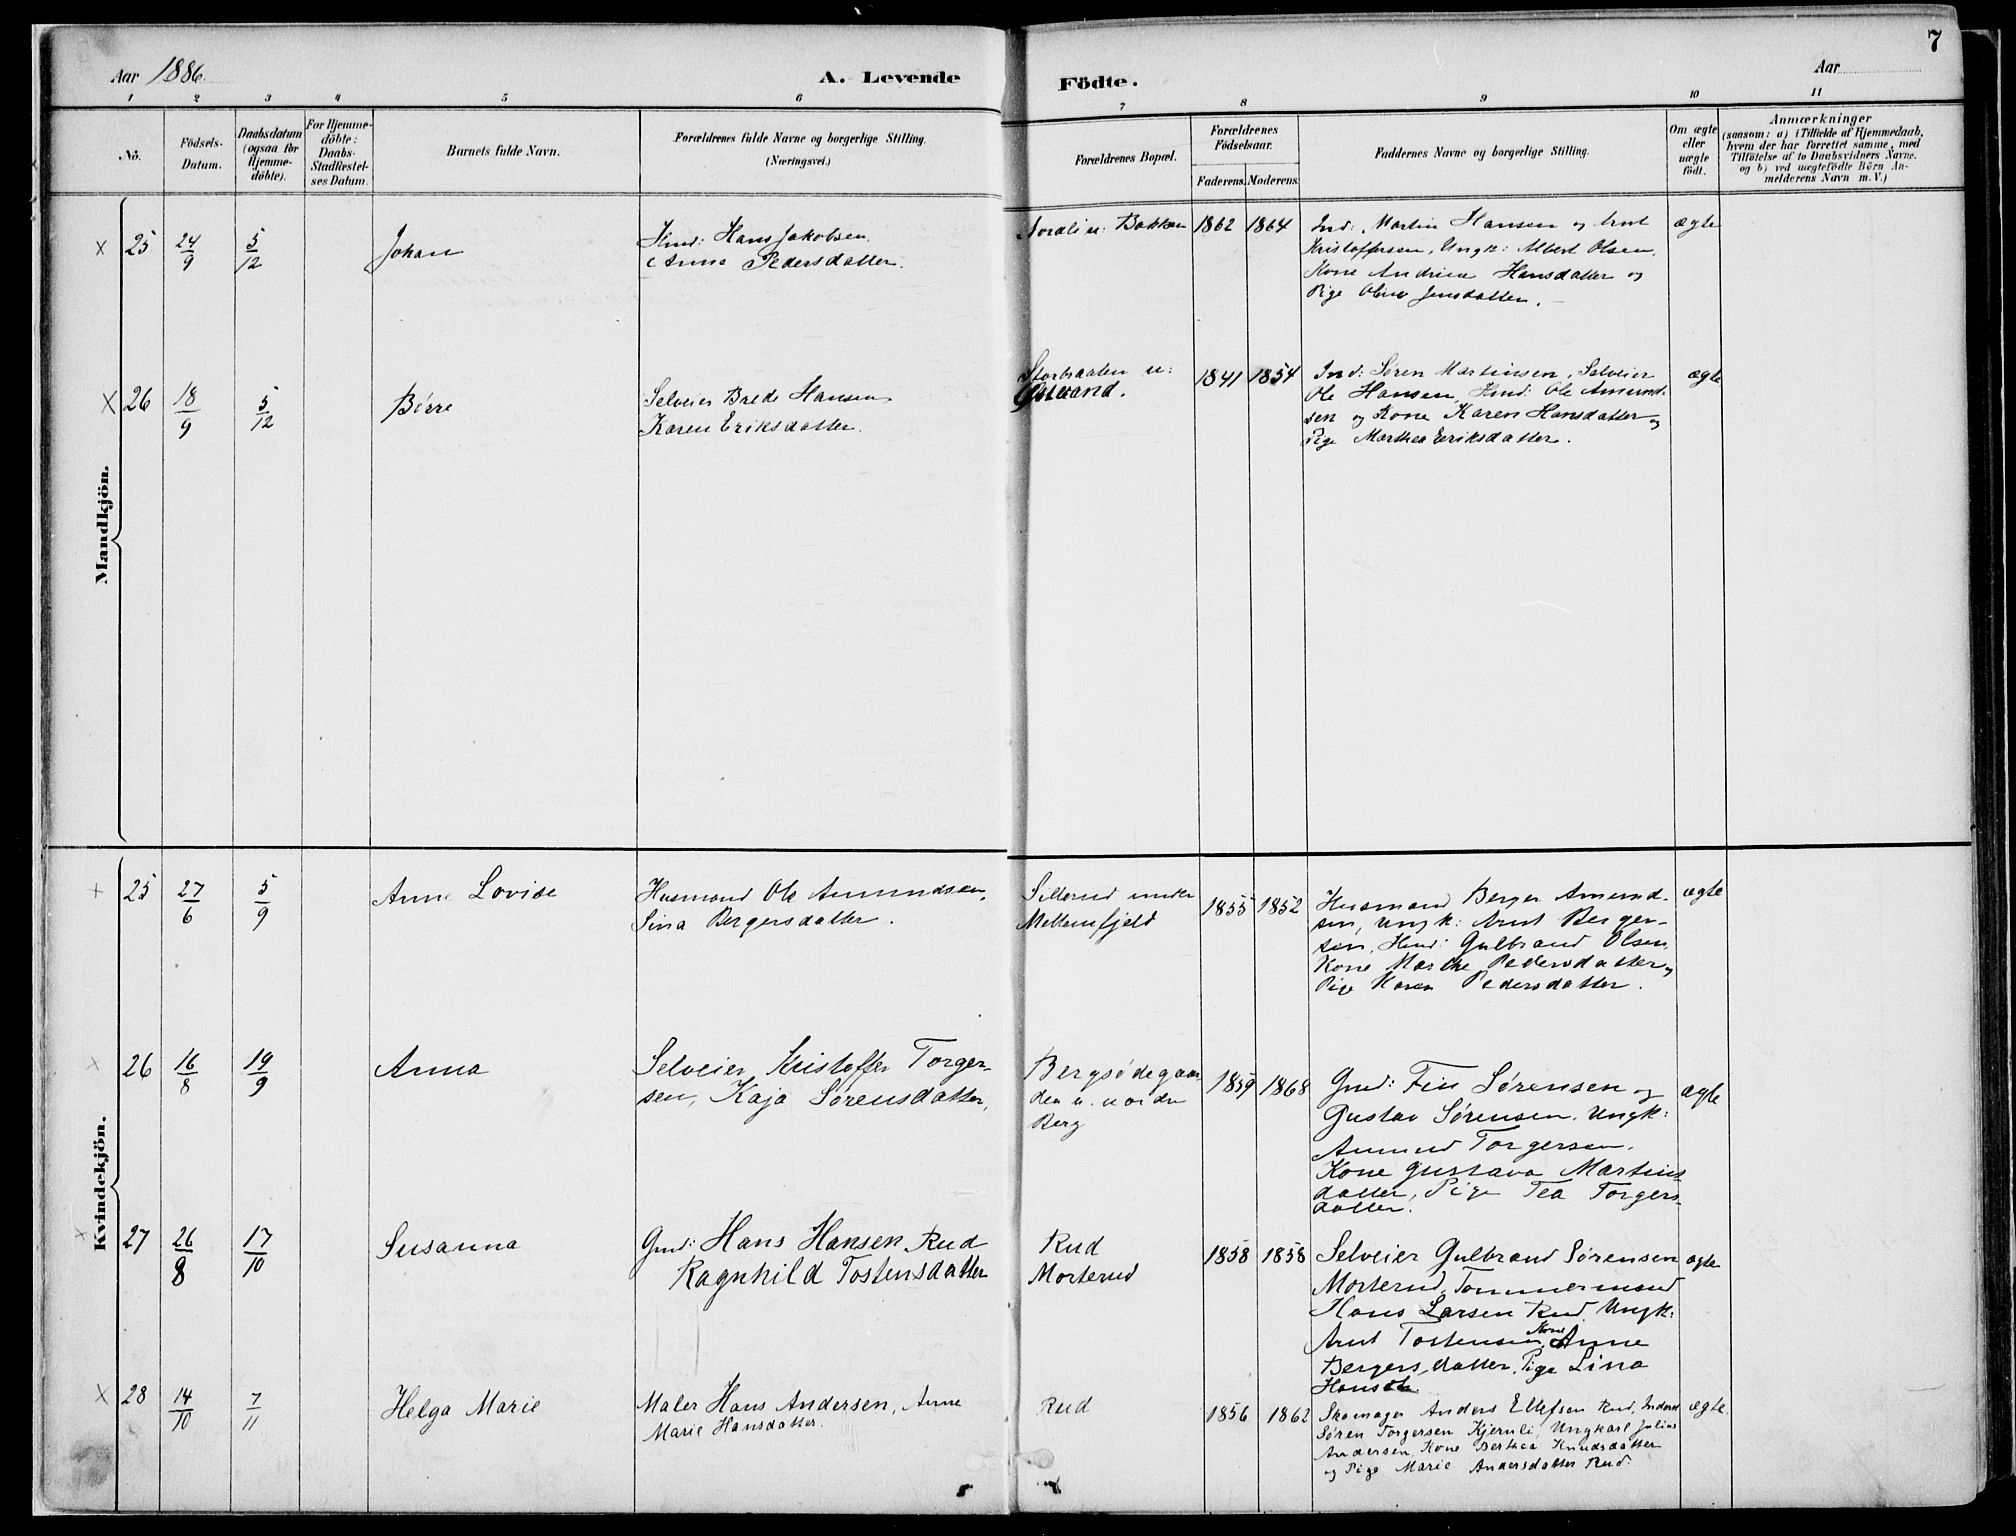 7
Aar 1886.
A. Levende
Födte.
Aar
1 2 3 4 5 6 7 8 9 10 11
No.
Födsels-
Datum.
Daabsdatum
(ogsaa for
Hjemme-
döbte).
For Hjemme-
döbte:
Daabs-
Stadfæstel-
ses Datum.
Barnets fulde Navn.
Forældrenes fulde Navne og borgerlige Stilling.
(Næringsvei.)
Forældrenes Bopæl.
Forældrenes
Födselsaar.
Faderens. Moderens.
Faddernes Navne og borgerlige Stilling.
Om ægte
eller
uægte
födt.
Anmærkninger
(saasom: a) i Tilfælde af Hjemmedaab,
hvem der har forrettet samme, med
Tilföielse af to Daabsvidners Navne.
og b) ved uægtefödte Börn An-
melderens Navn m. V.)
Mandkjön.
25 24/9 5/12 Johan
Hmd: Hans Jakobsen.
Anne Pedersdatter.
Nordli u: Bakken 1862 1864
Ind: Martin Hansen og Arnt
Kristoffersen, Ungk: Albert Olsen,
Kone Andrine Hansdatter og
Pige Oline Jensdatter.
ægte
26 18/9 5/12 Börre
Selveier Brede Hansen
Karen Eriksdatter.
u:
1841 1854
Ind: Sören Martinsen, Selveier
Ole Hansen, Hmd: Ole Amund-
sen og Kone Karen Hansdatter og
Pige Marthea Eriksdatter.
ægte
Kvindekjön.
25 27/6 5/9 Anne Lovise
Husmand Ole Amundsen,
Sina Bergersdatter.
Sillerud under
Mellemfjeld
1855 1852
Husmand Berger Amund-
sen, Ungk: Arnt Berger-
sen, Hmd: Gulbrand Olsen,
Kone Marthe Pedersdatter og
Pige Karen Pedersdatter.
ægte
26 16/8 19/9 Anna
Selveier Kristoffer Torger-
sen, Kaja Sörensdatter,
Bergsödegaar-
den u. nordre
Berg
1859 1868
Gmd: Fin Sörensen og
Gustav Sörensen, Ungk:
Amund Torgersen.
Kone Gustava Martins-
datter, Pige Tea Torgers-
datter.
ægte
27 26/8 17/10 Susanna
Gmd: Hans Hansen Rud
Ragnhild Tostensdatter
Rud
Morterud
1858 1858
Selveier Gulbrand Sörensen
Morterud, Tømmermand
Hans Larsen Rud, Ungk:
Arnt Tostensen, Kone Anne
Bergersdatter, Pige Lina
Hansdtr.
ægte
28 14/10 7/11 Helga Marie
Maler Hans Andersen, Anne
Marie Hansdatter.
Rud
1856 1862
Skomager Anders Ellefsen Rud, Inderst
Søren Torgersen Kjernli, Ungkarl Julius
Andersen, Kone Berthea Knudsdatter
og Pige Marie Andersdatter Rud.
ægte.